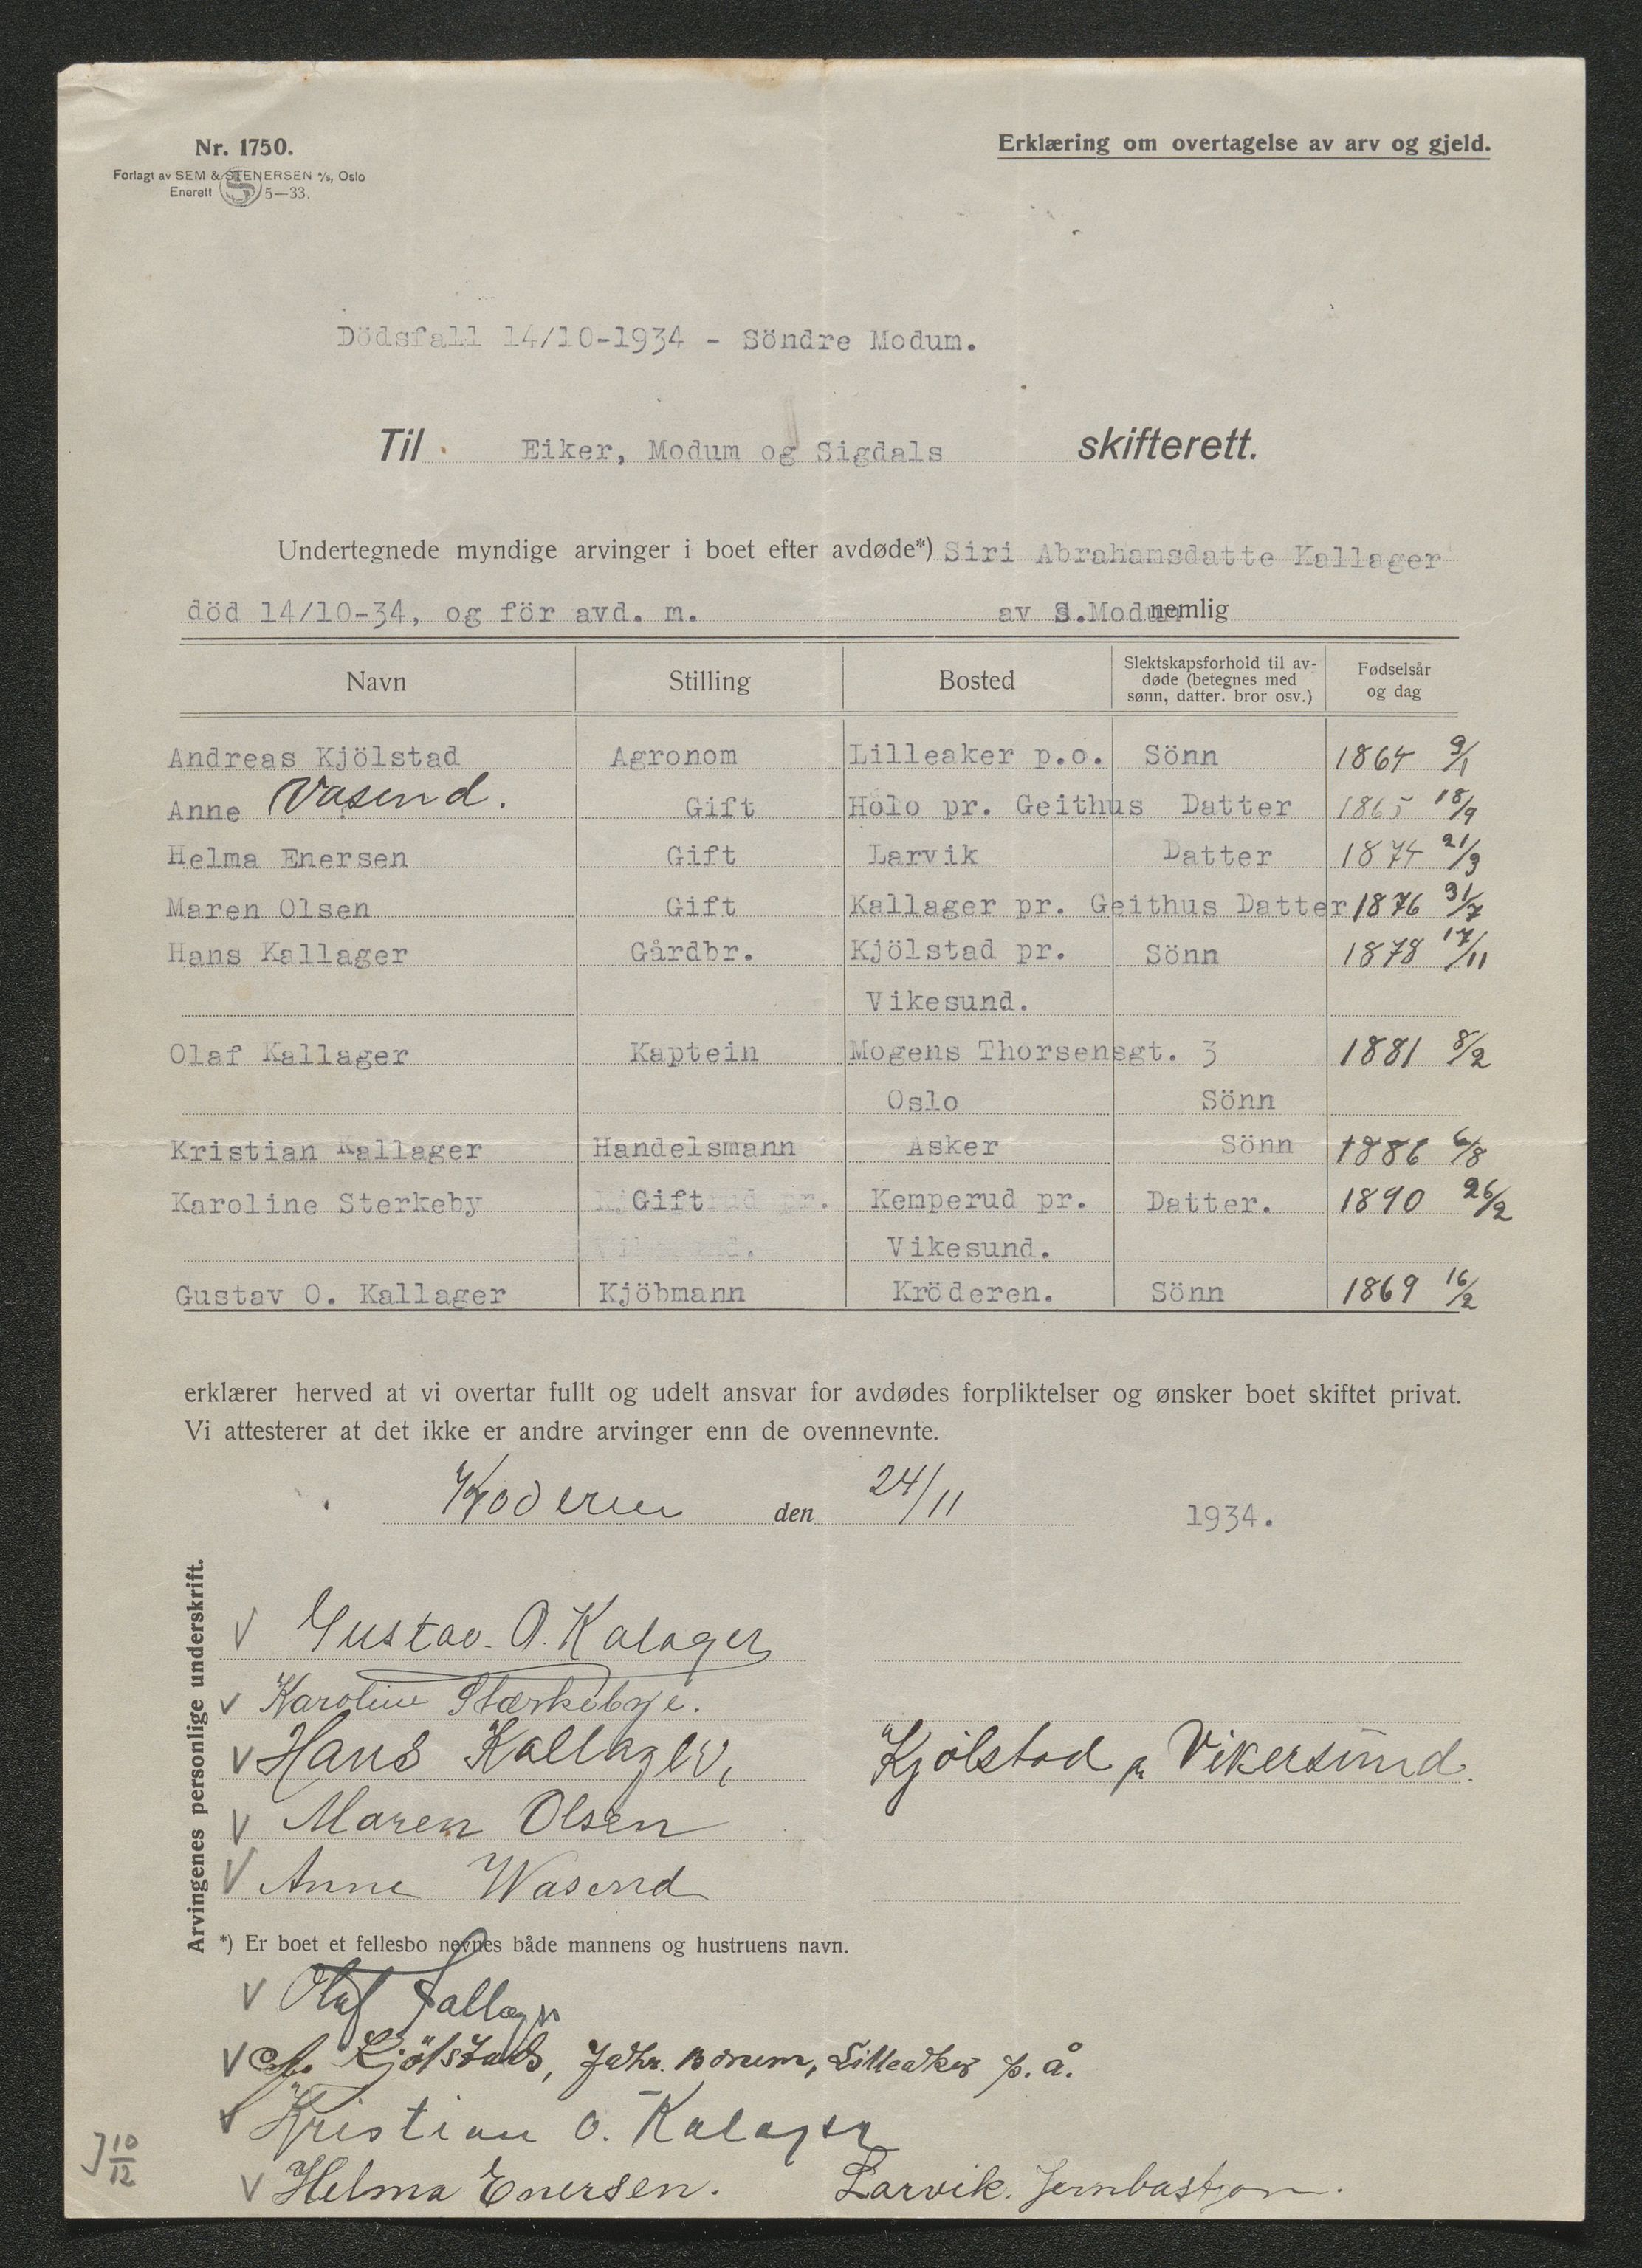 Nr. 1750.
Forlagt av SEM & STENERSEN A/s, Oslo
Enerett S 5—33.
Erklæring om overtagelse av arv og gjeld.
Dödsfall 14/10-1934 - Söndre Modum.
Til Eiker, Modum og Sigdals skifterett.
Undertegnede myndige arvinger i boet efter avdøde*) Siri Abrahamsdatte Kallager
död 14/10-34, og för avd. m. av S.Modum nemlig
Navn Stilling Bosted Slektskapsforhold til avdøde (betegnes med sønn, datter. bror osv.) Fødselsår og dag
Andreas Kjölstad Agronom Lilleaker p.o. Sönn 1864 9/1
Anne Vasend. Gift Holo pr. Geithus Datter 1865 18/9
Helma Enersen Gift Larvik Datter 1874 21/3
Maren Olsen Gift Kallager pr. Geithus Datter 1876 31/7
Hans Kallager Gårdbr. Kjölstad pr. Sönn 1878 17/11
Vikesund.
Olaf Kallager Kaptein Mogens Thorsensgt. 3 1881 8/2
Oslo Sönn
Kristian Kallager Handelsmann Asker Sönn 1886 6/8
Karoline Sterkeby Gift Kemperud pr. Datter. 1890 26/2
Vikesund.
Gustav O. Kallager Kjöbmann Kröderen. Sönn 1869 16/2
erklærer herved at vi overtar fullt og udelt ansvar for avdødes forpliktelser og ønsker boet skiftet privat.
Vi attesterer at det ikke er andre arvinger enn de ovennevnte.
den 24/11 1934.
Arvingenes personlige underskrift.
V Gustav. O. Kalager
V Karoline Stærkebye.
V Hans Kallager, Kjölstad pr Vikersund.
V Maren Olsen
V Anne Wasend
*) Er boet et fellesbo nevnes både mannens og hustruens navn.
V Olaf Kallager
V A. Kjölstad, Lilleaker p. å.
V Kristian O. Kalager
10/12
V Helma Enersen. Larvik. Jernbastion.